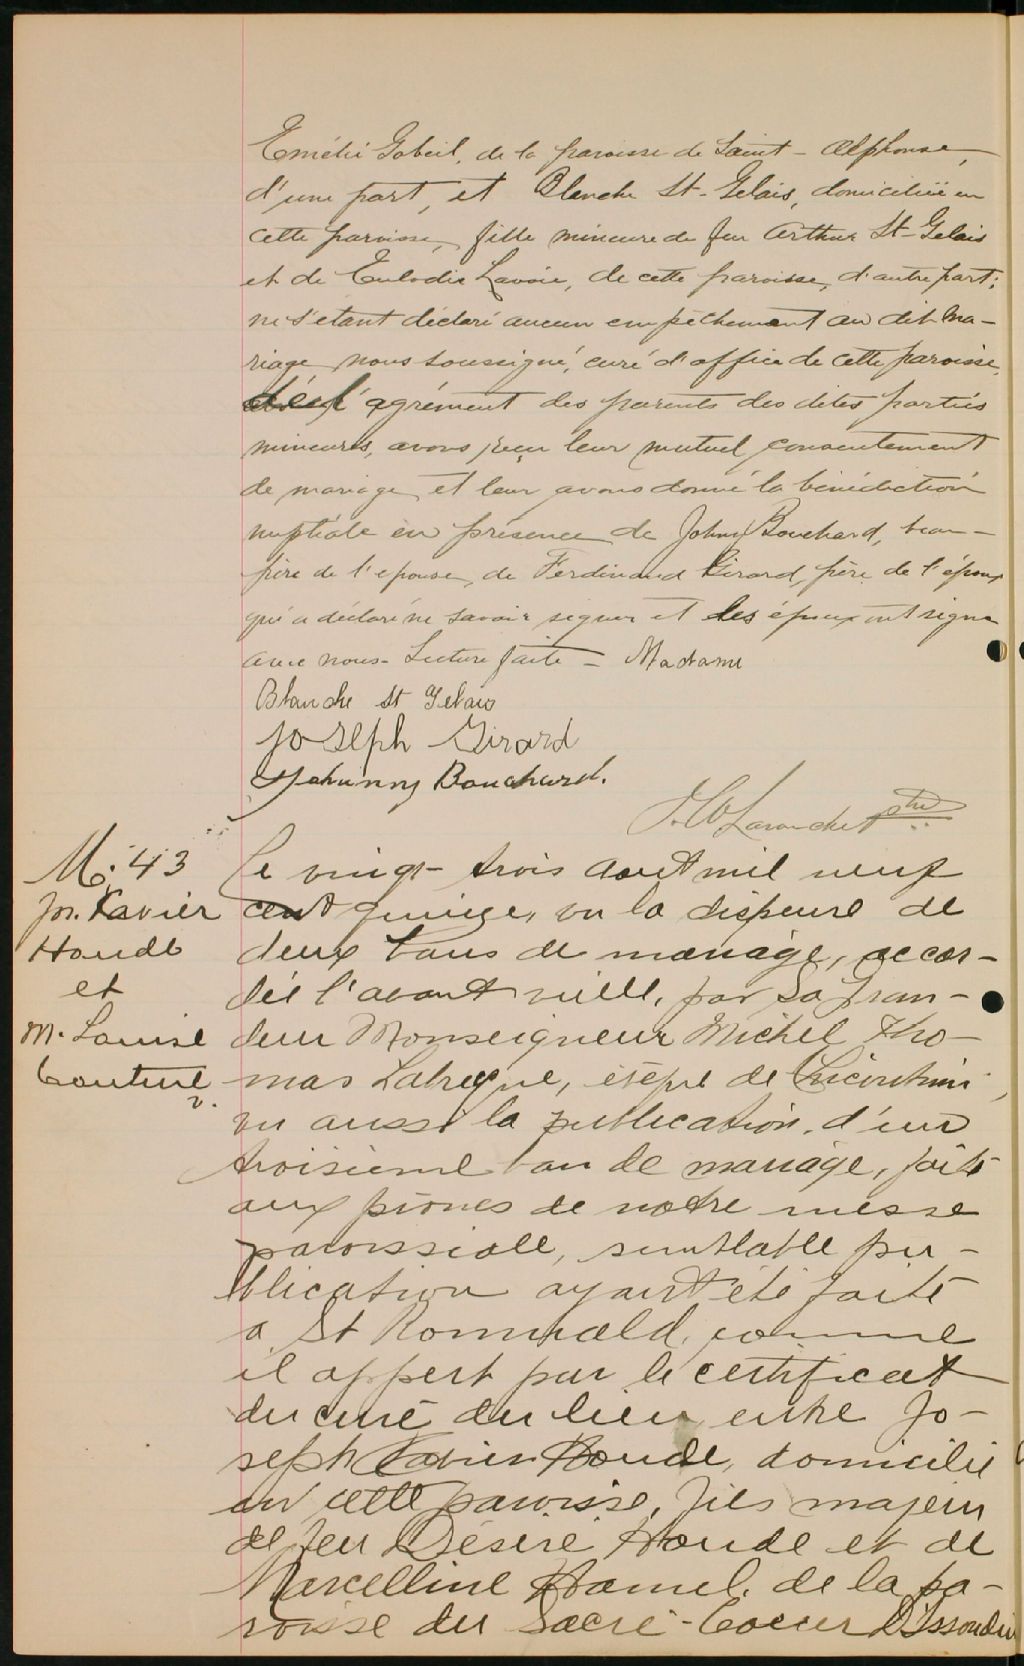 Emélie Gobeil, de la paroisse de Saint-Alphonse,
d'une part, et Blanche St-Gelais, domiciliée en
cette paroisse, fille mineure de feu Arthur St-Gelais
et de Eulodie Lavoie, de cette paroisse, d'autre part;
ne s'étant déclaré aucun empêchement au dit ma-
riage nous soussigné, curé d'office de cette paroisse,
l'agrément des parents des dites parties
mineures, avons reçu leur mutuel consentement
de mariage et leur avons donné la bénédiction
nuptiale en présence de Johny Bouchard, beau-
père de l'épouse, de Ferdinand Girard, père de l'époux
qui a déclaré ne savoir signer et les époux ont signé
avec nous. Lecture faite - Madame
Blanche St Gelais
Joseph Girard
Johnny Bouchard.
ptre
M. 43
Jos. Xavier
Houde
et
M. Louise
Couture
Le vingt-trois août mil neuf
cent quinze, vu la dispense de
deux bans de mariage, accor-
dée l'avant veille, par Sa Gran-
deur Monseigneur Michel Tho-
mas Labrecque, évêque de Chicoutimi,
vu aussi la publication d'un
troisième ban de mariage, faite
aux prônes de notre messe
paroissiale, semblable pu-
blication ayant été faite
à St Romuald, comme
il appert par le certificat
du curé du lieu, entre Jo-
seph Xavier Houde, domicilié
en cette paroisse, fils majeur
de feu Désiré Houde et de
Marcelline Hamel, de la pa-
roisse du Sacré-Coeur D'Issoudun